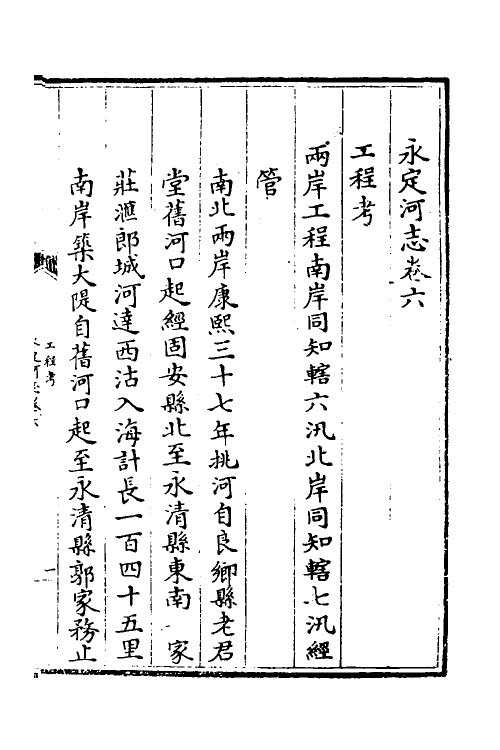 永定河志卷六
工程考
兩岸工程南岸同知轄六汛北岸同知轄七汛經
管
南北兩岸康熙三十七年挑河自良鄉縣老君
堂舊河口起經固安縣北至永清縣東南 家
莊滙郎城河達西沽入海計長一百四十五里
南岸築大隄自舊河口起至永清縣郭家務止
永定河志卷六
工程考
一